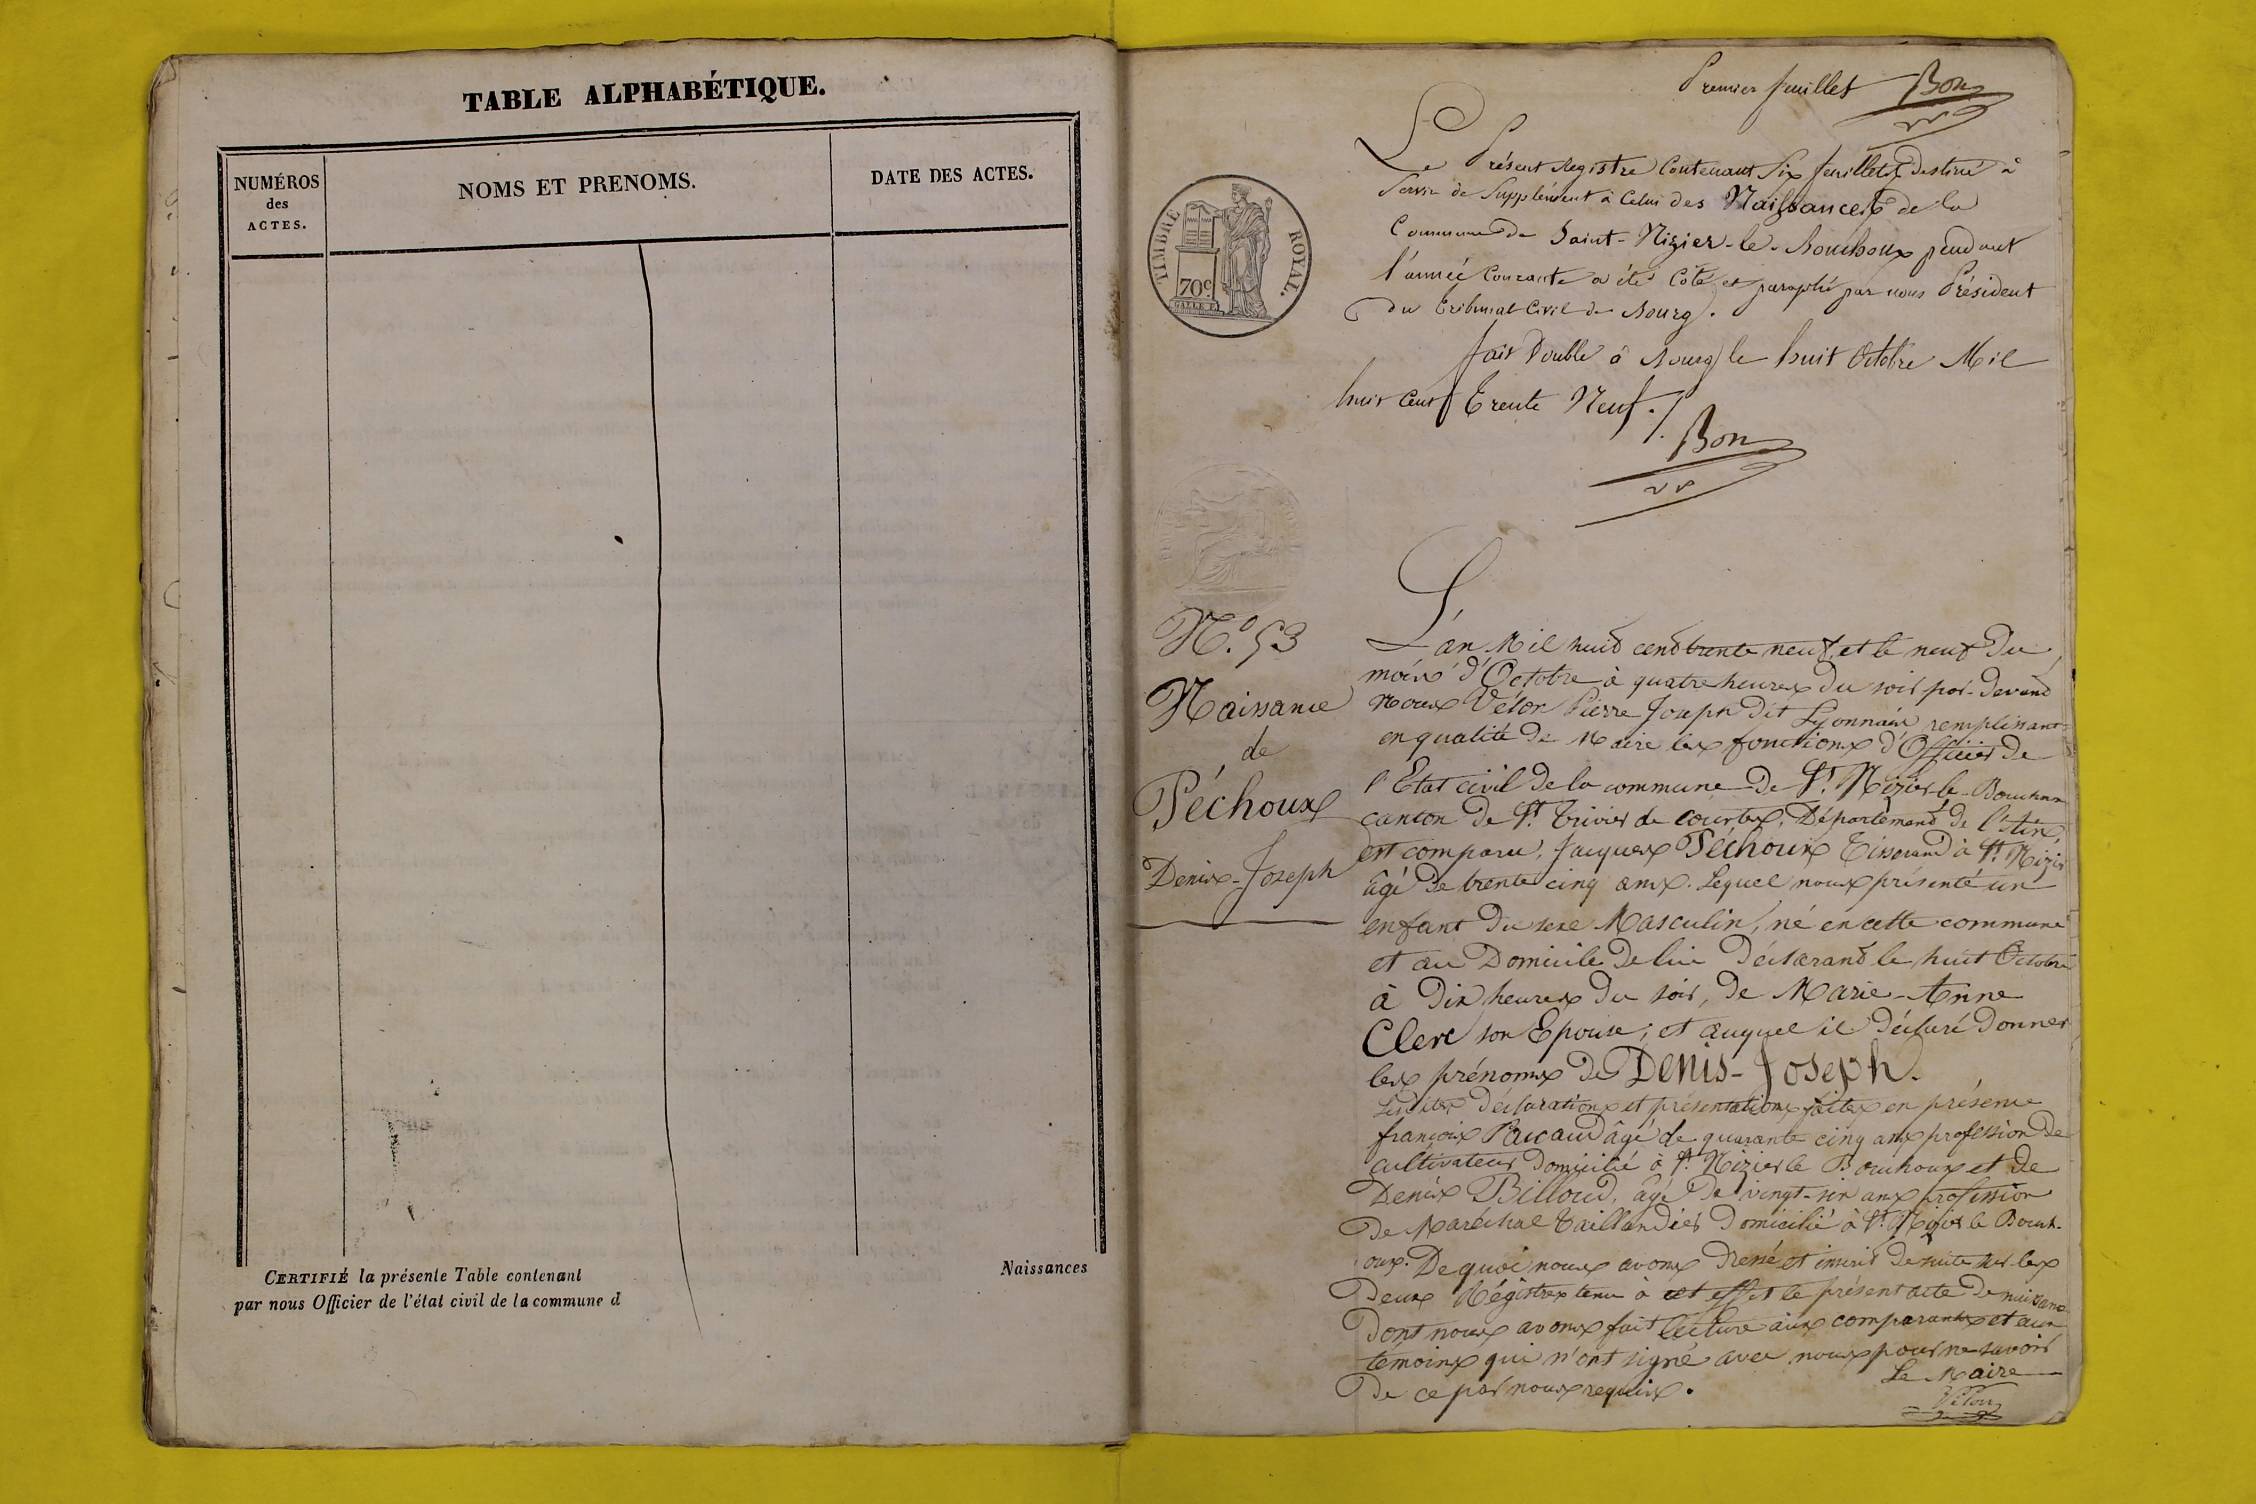 TABLE ALPHABÉTIQUE.
NUMÉROS
des
ACTES.
NOMS ET PRENOMS.
DATE DES ACTES.
CERTIFIÉ la présente Table contenant
par nous Officier de l'état civil de la commune d
Naissances
Premier feuillet Bon
TIMBRE ROYAL.
70c
Le Présent Registre Contenant Six feuillets destiné à
Servir de Supplément à Celui des Naissances de la
Commune de Saint-Nizier-le-Bouchoux pendant
l'année Courante a été Coté et paraphé par nous Président
du tribunal Civil de Bourg.
fait Double à Bourg le huit Octobre Mil
huit Cent Trente Neuf./.
Bon
N.° 53
Naissance
de
Péchoux
Denis-Joseph
L'an Mil huit cent trente neuf, et le neuf du
mois d'Octobre à quatre heures du soir par-devant
Nous Vélon Pierre Joseph dit Lyonnais remplissant
en qualité de Maire les fonctions d'Officier de
l'Etat civil de la commune de St. Nizier-le-Bouchoux
canton de St. Trivier de courtes, Département de l'Ain,
est comparu, Jacques Péchoux Tisserand à St. Nizier
âgé de trente cinq ans. Lequel nous présenté un
enfant du sexe Masculin, né en cette commune
et au Domicile de lui Déclarant le huit Octobre
à Dix heures du soir, de Marie-Anne
Clerc son Epouse; et auquel il déclaré Donner
les prénoms de Denis-Joseph.
Lesdites déclarations et présentations faites en présence
françois Paucaud âgé de quarante cinq ans profession de
cultivateur Domicilié à St. Nizier le Bouchoux et de
Denis Billoud, âgé de vingt-six ans profession
de Maréchal Taillandier Domicilié à St. Nizier le Bouch-
oux. De quoi nous avons dressé et inscrit de suite sur les
Deux Régistres tenu à cet effet le présent acte de naissance
Dont nous avons fait lecture aux comparants et aux
témoins qui n'ont signé avec nous pour ne savoir
de ce par nous requis.
Le Maire
Vélon